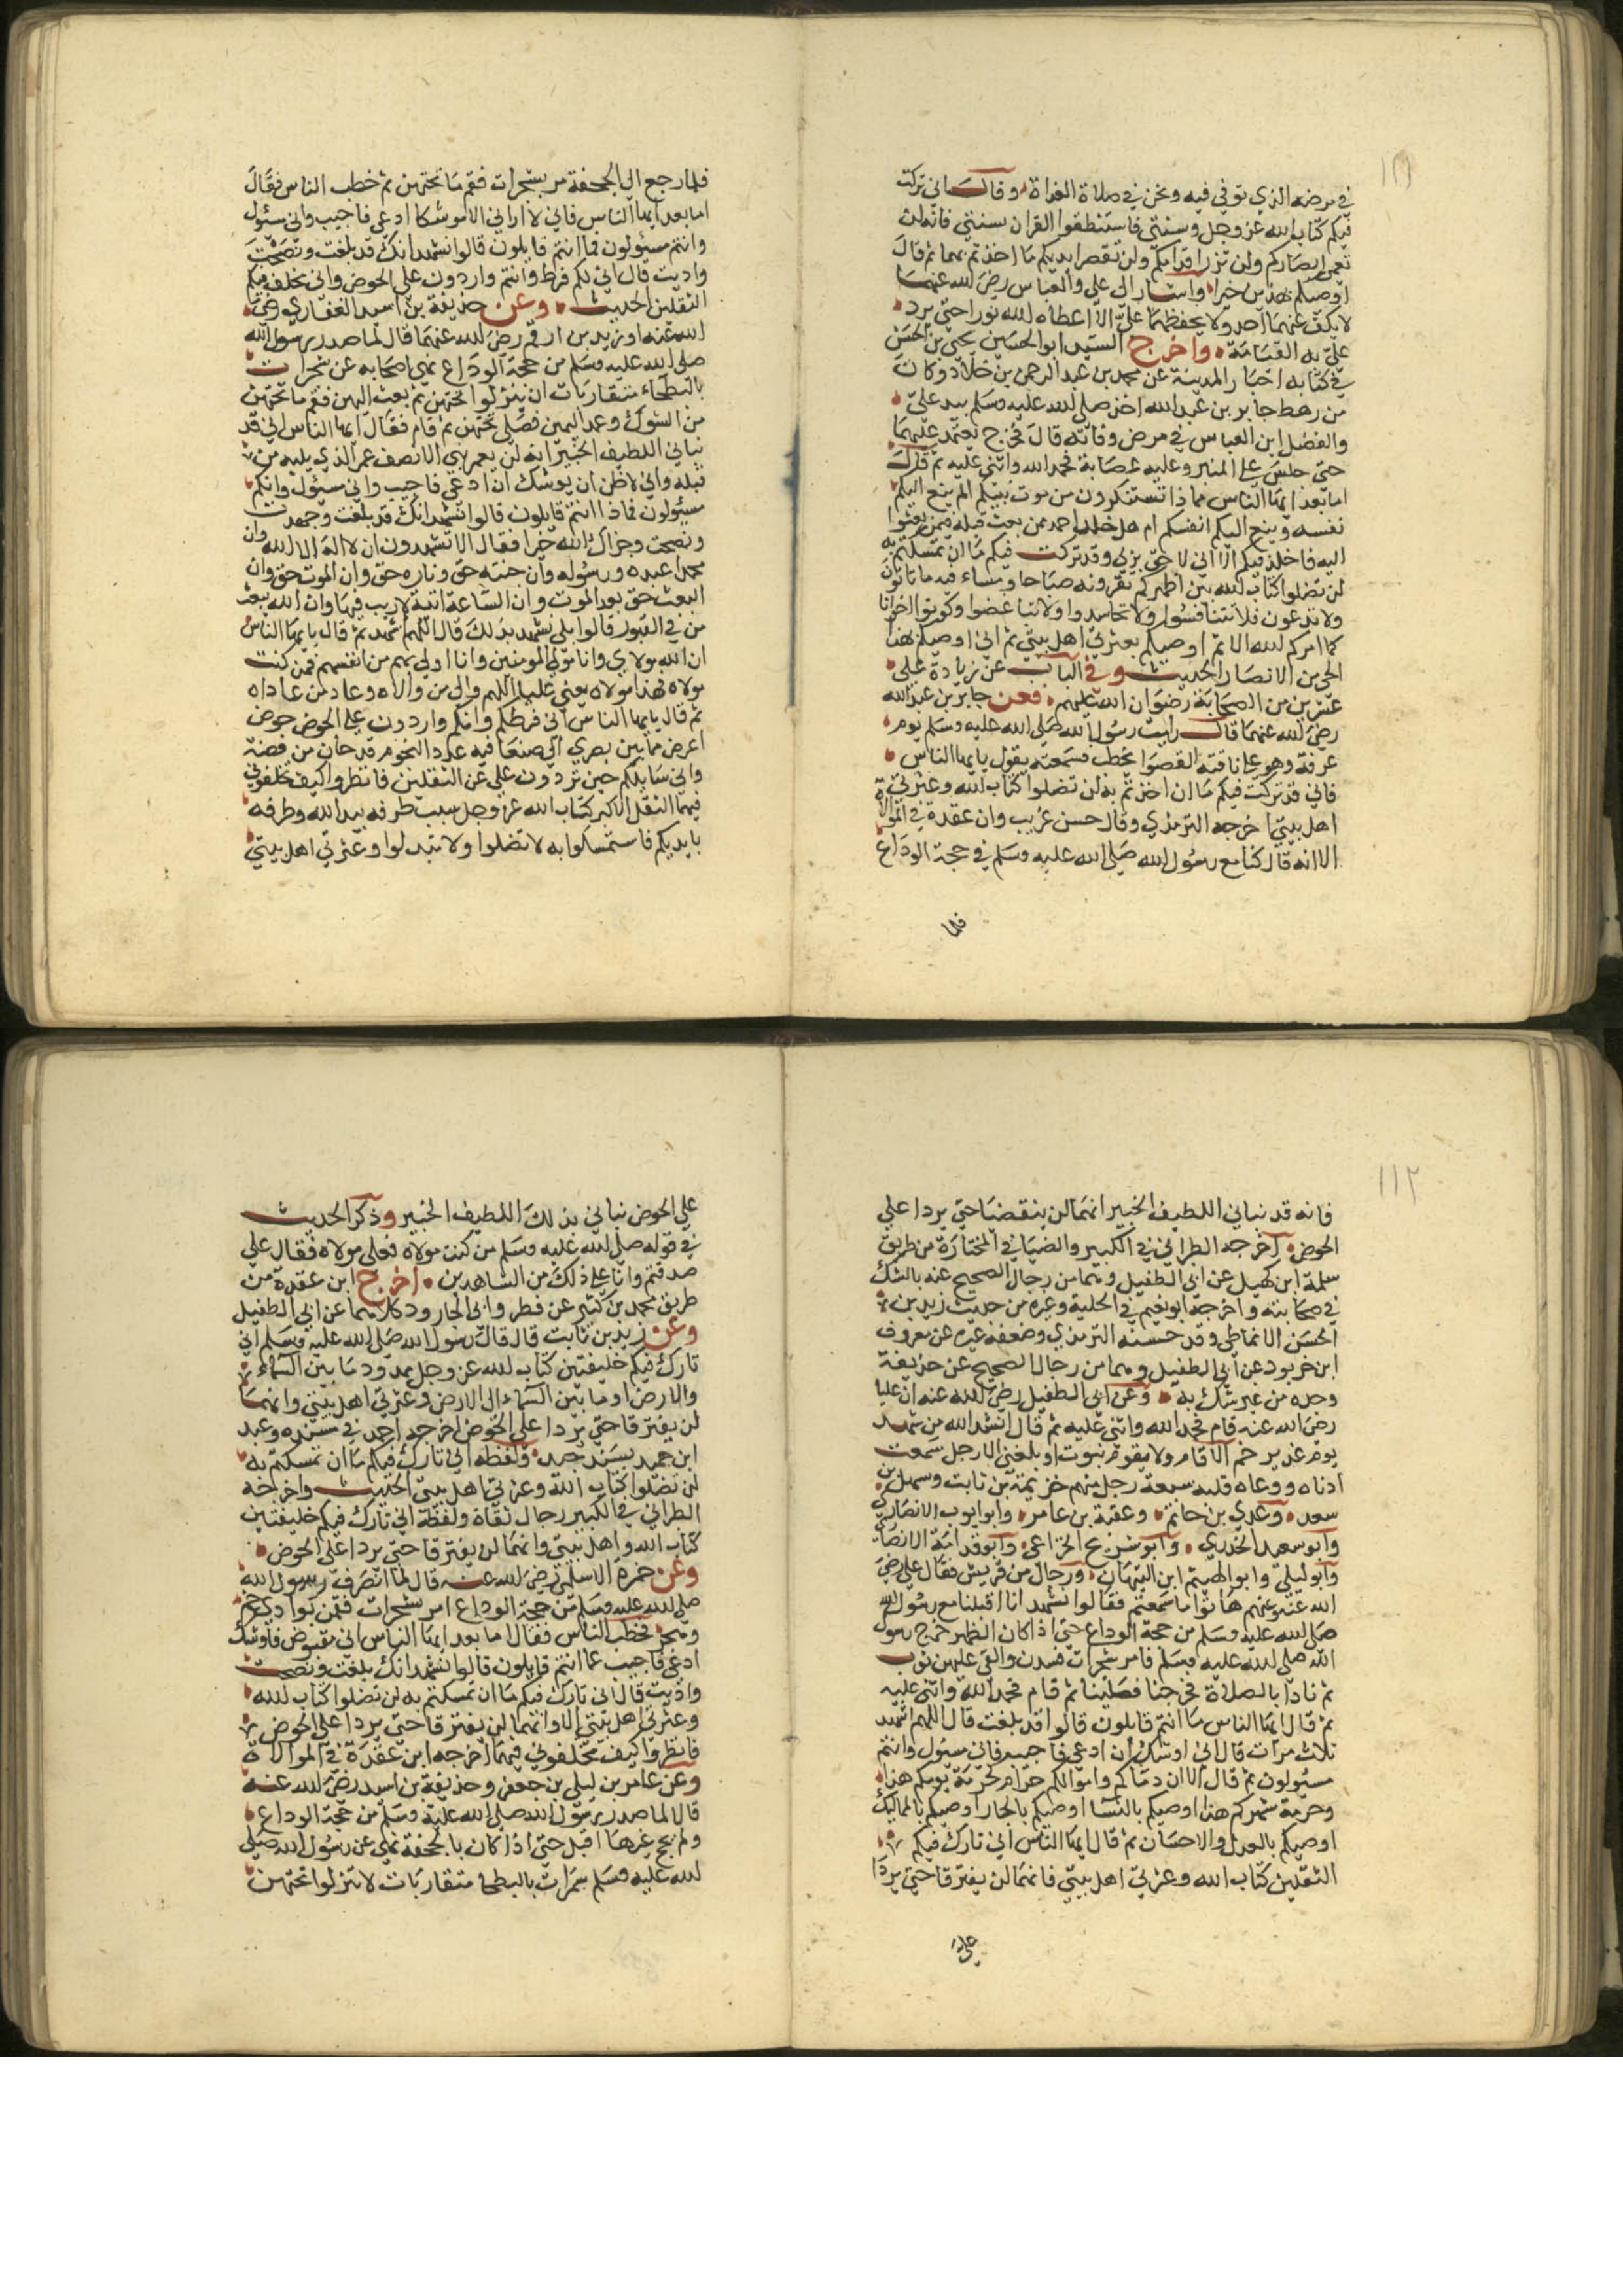 ١١١
في مرضه الذي توفي فيه ونحن في صلاة الغداة وقال اني تركت
فيكم كتاب الله عز وجل وسنتي فاستنطقوا القران بسنتي فانه لن
تعمى ابصاركم ولن تزل اقدامكم ولن تقصر ايديكم ما اخذتم بهما ثم قال
اوصيكم بهذين خيرا واشار الى علي والعباس رضي الله عنهما
لا يكف عنهما احد ولا يحفظهما علي الا اعطاه الله نورا حتى يرد
علي به القيامة واخرج السيد ابو الحسين يحيى بن الحسن
في كتابه اخبار المدينة عن محمد بن عبد الرحمن بن خلاد وكان
من رهط جابر بن عبد الله اخذ صلى الله عليه وسلم بيد علي
والفضل ابن العباس في مرض وفاته قال فخرج يعتمد عليهما
حتى جلس على المنبر وعليه عصابة فحمد الله واثنى عليه ثم قال
اما بعد ايها الناس مماذا تستنكرون من موت نبيكم الم ينع اليكم
نفسه وينع اليكم انفسكم ام هل خلد احد ممن بعث قبله فيمن بعثوا
اليه فاخلد فيكم الا اني لاحق بربي وقد تركت فيكم ما ان تمسكتم به
لن تضلوا كتاب الله بين اظهركم تقرونه صباحا ومساء فيه ما تاتون
ولا تدعون فلا تنافسوا ولا تحاسدوا ولا تباغضوا وكونوا اخوانا
كما امركم الله الا ثم اوصيكم بعترتي اهل بيتي ثم اني اوصيكم بهذا
الحي من الانصار الحديث وفي الباب عن زيادة على
عشرين من الصحابة رضوان الله عليهم فعن جابر بن عبد الله
رضي الله عنهما قال رايت رسول الله صلى الله عليه وسلم يوم
عرفة وهو على ناقته القصوا يخطب فسمعته يقول يا يها الناس
فاني قد تركت فيكم ما ان اخذتم به لن تضلوا كتاب الله وعترتي
اهل بيتي اخرجه الترمذي وقال حسن غريب وابن عقدة في الموالاة
الا انه قال كنا مع رسول الله صلى الله عليه وسلم في حجة الوداع
فلما
فلما رجع الى الجحفة مر بشجرات فقم ما تحتهن ثم خطب الناس فقال
اما بعد ايها الناس فاني لا اراني الا موشكا ادعي فاجيب واني مسئول
وانتم مسئولون فما انتم قايلون قالوا نشهد انك قد بلغت ونصحت
واديت قال اني لكم فرط وانتم واردون علي الحوض واني مخلف فيكم
الثقلين الحديث وعن حذيفة بن اسيد الغفاري رضي
الله عنه او زيد بن ارقم رضي الله عنهما قال لما صدر رسول الله
صلى الله عليه وسلم من حجة الوداع نهى اصحابه عن شجرات
بالبطحاء متقاربات ان ينزلوا تحتهن ثم بعث اليهن فقم ما تحتهن
من الشوك وعمد اليهن فصلى تحتهن ثم قام فقال ايها الناس اني قد
نباني اللطيف الخبير انه لن يعمر نبي الا نصف عمر الذي يليه من
قبله واني لاظن ان يوشك ان ادعي فاجيب واني مسئول وانكم
مسئولون فماذا انتم قايلون قالوا نشهد انك قد بلغت وجهدت
ونصحت وجزاك الله خيرا فقال الا تشهدون ان لا اله الا الله وان
محمدا عبده ورسوله وان جنته حق وناره حق وان الموت حق وان
البعث حق بعد الموت وان الساعة اتية لا ريب فيها وان الله يبعث
من في القبور قالوا بلى نشهد بذلك قال اللهم اشهد ثم قال يا يها الناس
ان الله مولاي وانا مولى المومنين وانا اولي بهم من انفسهم فمن كنت
مولاه فهذا مولاه يعني عليا اللهم والي من والاه وعاد من عاداه
ثم قال يا يها الناس اني فرطكم وانكم واردون علي الحوض حوض
اعرض مما بين بصرى الي صنعا فيه عدد النجوم قد حان من فضة
واني سايلكم حين تردون علي عن الثقلين فانظروا كيف تخلفوني
فيهما الثقل الاكبر كتاب الله عز وجل سبب طرفه بيد الله وطرفه
بايديكم فاستمسكوا به لا تضلوا ولا تبدلوا وعترتي اهل بيتي
١١٢
فانه قد نباني اللطيف الخبير انهما لن ينقضيا حتى يردا علي
الحوض اخرجه الطبراني في الكبير والضيا في المختارة من طريق
سلمة ابن كهيل عن ابي الطفيل وهما من رجال الصحيح عنه بالشك
في صحابيه واخرجه ابو نعيم في الحلية وغيره من حديث زيد بن
الحسن الانماطي وقد حسنه الترمذي وضعفه غيره عن معروف
ابن خربوذ عن ابي الطفيل وهما من رجال الصحيح عن حذيفة
وحده من غير شك به وعن ابي الطفيل رضي الله عنه ان عليا
رضي الله عنه قام فحمد الله واثنى عليه ثم قال انشد الله من شهد
يوم غدير خم الا قام ولا يقوم نبوت او بلغني الا رجل سمعت
اذناه ووعاه قلبه سبعة رجل منهم خزيمة بن ثابت وسهل بن
سعد وعدي بن حاتم وعقبة بن عامر وابو ايوب الانصاري
وابو سعيد الخدري وابو شريح الخزاعي وابو قدامة الانصاري
وابو ليلى وابو الهيثم ابن التيهان ورجال من قريش فقال علي رضي
الله عنه وعنهم هاتوا ما سمعتم فقالوا نشهد انا اقبلنا مع رسول الله
صلى الله عليه وسلم من حجة الوداع حتى اذا كان الظهر خرج رسول
الله صلى الله عليه وسلم فامر بشجرات فشدن والقي عليهن ثوب
ثم نادا بالصلاة فخرجنا فصلينا ثم قام فحمد الله واثنى عليه
ثم قال ايها الناس ما انتم قايلون قالوا قد بلغت قال اللهم اشهد
ثلاث مرات قال اني اوشك ان ادعي فاجيب واني مسئول وانتم
مسئولون ثم قال الا ان دماكم واموالكم حرام كحرمة يومكم هذا
وحرمة شهركم هذا اوصيكم بالنسا اوصيكم بالجار اوصيكم بالمماليك
اوصيكم بالعدل والاحسان ثم قال ايها الناس اني تارك فيكم
الثقلين كتاب الله وعترتي اهل بيتي فانهما لن يفترقا حتى يردا
علي
علي الحوض نباني بذلك اللطيف الخبير وذكر الحديث
في قوله صلى الله عليه وسلم من كنت مولاه فعلي مولاه فقال علي
صدقتم وانا على ذلك من الشاهدين اخرج ابن عقدة من
طريق محمد بن كثير عن فطر وابي الجارود كلاهما عن ابي الطفيل
وعن زيد بن ثابت قال قال رسول الله صلى الله عليه وسلم اني
تارك فيكم خليفتين كتاب الله عز وجل ممدود ما بين السماء
والارض او ما بين السماء الى الارض وعترتي اهل بيتي وانهما
لن يفترقا حتى يردا على الحوض اخرجه احمد في مسنده وعبد
ابن حميد بسند جيد ولفظه اني تارك فيكم ما ان تمسكتم به
لن تضلوا كتاب الله وعترتي اهل بيتي الحديث واخرجه
الطبراني في الكبير رجال ثقاة ولفظه اني تارك فيكم خليفتين
كتاب الله واهل بيتي وانهما لن يفترقا حتى يردا على الحوض
وعن ضمرة الاسلمي رضي الله عنه قال لما انصرف رسول الله
صلى الله عليه وسلم من حجة الوداع امر بشجرات فقمن بوادي خم
وهجر فخطب الناس فقال اما بعد ايها الناس اني مقبوض فاوشك
ادعي فاجيب عما انتم قايلون قالوا نشهد انك بلغت ونصحت
واديت قال اني تارك فيكم ما ان تمسكتم به لن تضلوا كتاب الله
وعترتي اهل بيتي الا وانهما لن يفترقا حتى يردا علي الحوض
فانظروا كيف تخلفوني فيهما اخرجه ابن عقدة في الموالاة
وعن عامر بن ليلى بن جعفر وحذيفة بن اسيد رضي الله عنه
قال لما صدر رسول الله صلى الله عليه وسلم من حجة الوداع
ولم يحج غيرها اقبل حتى اذا كان بالجحفة نهى عن رسول الله صلى
الله عليه وسلم سمرات بالبطحا متقاربات لا تنزلوا تحتهن